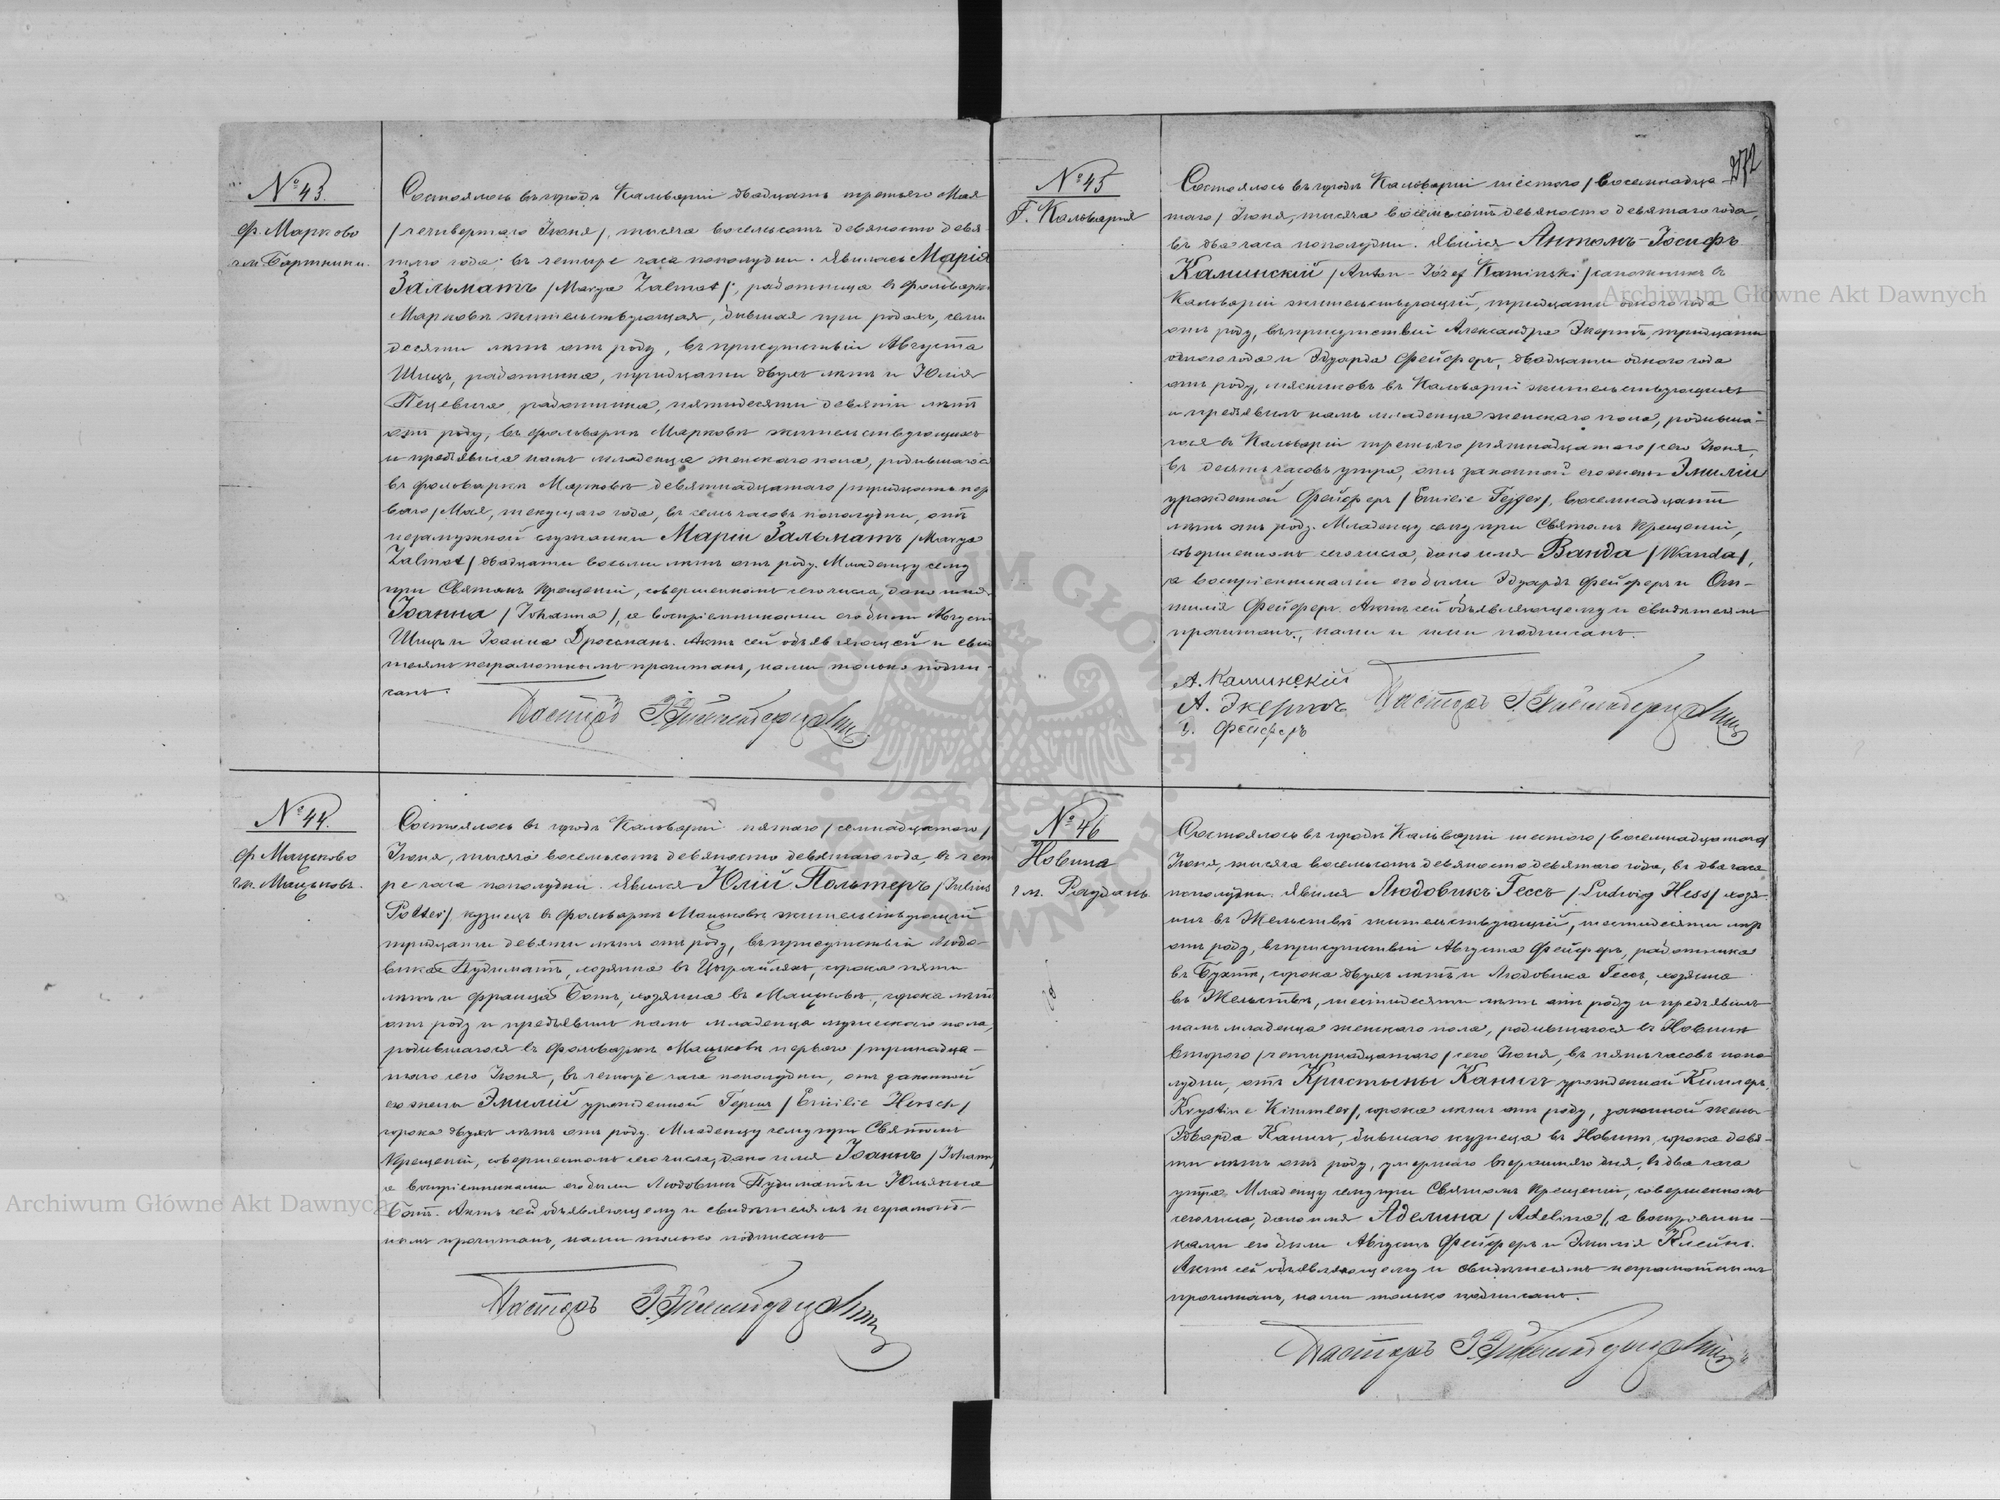 № 43.
ф. Марково
гм. Бартники.
Состоялось въ городѣ Кальварiи двадцать третьяго Мая
/четвертаго Iюня/, тысяча восемьсотъ девяносто девя-
таго года въ четыре часа пополудни. Явилась Марiя
Зальматъ /Marya Zalmat/, работница въ фольваркѣ
Марковѣ жительствующая, бывшая при родахъ, семи
десяти лѣтъ отъ роду, въ присутствiи Августа
Шицъ, работника, тридцати двухъ лѣтъ и Юлiя
Пецевича, работника, пятидесяти девяти лѣтъ
отъ роду, въ фольваркѣ Марковѣ жительствующихъ
и предъявила намъ младенца женскаго пола, родившагося
въ фольваркѣ Марковѣ девятнадцатаго /тридцать пер
ваго/ Мая, текущаго года, въ семь часовъ пополудни, отъ
незамужной служанки Марiи Зальматъ /Marya
Zalmat/ двадцати восьми лѣтъ отъ роду. Младенцу сему
при Святомъ Крещенiи, совершенномъ сего числа, дано имя
Iоанна /Johanna/, а воспрiемниками его были Августъ
Шицъ и Iоанна Дроссманъ. Актъ сей объявляющей и сви
телямъ неграмотнымъ прочитанъ, нами только подпи-
санъ.
Пасторъ
№ 44.
ф. Мацьково
гм. Мацьковъ.
Состоялось въ городѣ Кальварiи пятаго /семнадцатаго/
Iюня, тысяча восемьсотъ девяносто девятаго года, въ чет
ре часа пополудни. Явился Юлiй Польтеръ /Julius
Polter/ кузнецъ въ фольваркѣ Мацьковѣ жительствующiй
тридцати девяти лѣтъ отъ роду, въ присутствiи Людо-
вика Пудиматъ, хозяина въ сорока пяти
лѣтъ и Франца Ботъ, хозяина въ Мацьковѣ, сорока лѣтъ
отъ роду и предъявилъ намъ младенца мужескаго пола,
родившагося въ фольваркѣ Мацьковѣ перваго /тринадца-
таго сего Iюня, въ четыре часа пополудни, отъ законной
его жены Эмилiи урожденной Гершъ /Emilie Hersch/
сорока двухъ лѣтъ отъ роду. Младенцу сему при Святомъ
Крещенiи, совершенномъ сего числа, дано имя Iоаннъ /Johann
а воспрiемниками его были Людовикъ Пудиматъ и Юлянна
Ботъ. Актъ сей объявляющему и свидѣтелямъ неграмот-
нымъ прочитанъ, нами только подписанъ
Пасторъ
№ 45
Г. Кальварiя
Состоялось въ городѣ Кальварiи шестого /восемнадца-
таго/ Iюня, тысяча восемьсотъ девяносто девятаго года,
въ два часа пополудни. Явился Антонъ-Iосифъ
Каминскiй /Anton-Józef Kaminski/ сапожникъ въ
Кальварiи жительствующiй, тридцати одного года
отъ роду, въ присутствiи Александра Экертъ, тридцати
одного года и Эдуарда Фейферъ, двадцати одного года
отъ роду, мясниковъ въ Кальварiи жительствующихъ
и предъявилъ намъ младенца женскаго пола, родивша-
гося въ Кальварiи третьяго /пятнадцатаго/ сего Iюня,
въ десять часовъ утра, отъ законной его жены Эмилiи
урожденной Фейферъ /Emilie Fejfer/, восемнадцати
лѣтъ отъ роду. Младенцу сему при Святомъ Крещенiи,
совершенномъ сего числа, дано имя Ванда /Wanda/,
а воспрiемниками его были Эдуардъ Фейферъ и От-
тилiя Фейферъ. Актъ сей объявляющему и свидѣтелямъ
прочитанъ, нами и ими подписанъ.
А. Каминскiй
А. Экертъ
Э. Фейферъ
Пасторъ
№ 46
Новина
гм. Раудань
Состоялось въ городѣ Кальварiи шестого /восемнадцатаго/
Iюня, тысяча восемьсотъ девяносто девятаго года, въ два часа
пополудни. Явился Людовикъ Гессъ /Ludwig Hess/ хозя
инъ въ Жельствѣ жительствующiй, шестидесяти лѣтъ
отъ роду, въ присутствiи Августа Фейферъ, работника
въ Буктѣ, сорока двухъ лѣтъ и Людовика Гессъ, хозяина
въ Жельствѣ, шестидесяти лѣтъ отъ роду и предъявилъ
намъ младенца женскаго пола, родившагося въ Новинѣ
второго /четырнадцатаго/ сего Iюня, въ пять часовъ попо
лудни, отъ Кристыны Каничъ урожденной Киммлеръ,
Krystine Kimmler/, сорока лѣтъ отъ роду, законной жены
Эдварда Каничъ, бывшаго кузнеца въ Новинѣ, сорока девя-
ти лѣтъ отъ роду, умершаго вчерашняго дня, въ два часа
утра. Младенцу сему при Святомъ Крещенiи, совершенномъ
сего числа, дано имя Аделина /Adelina/, а воспрiемни-
ками его были Августъ Фейферъ и Эмилiя Клейнъ.
Актъ сей объявляющему и свидѣтелямъ неграмотнымъ
прочитанъ, нами только подписанъ.
Пасторъ
Archiwum Główne Akt Dawnych
Archiwum Główne Akt Dawnych
ARCHIWUM GŁÓWNE AKT DAWNYCH